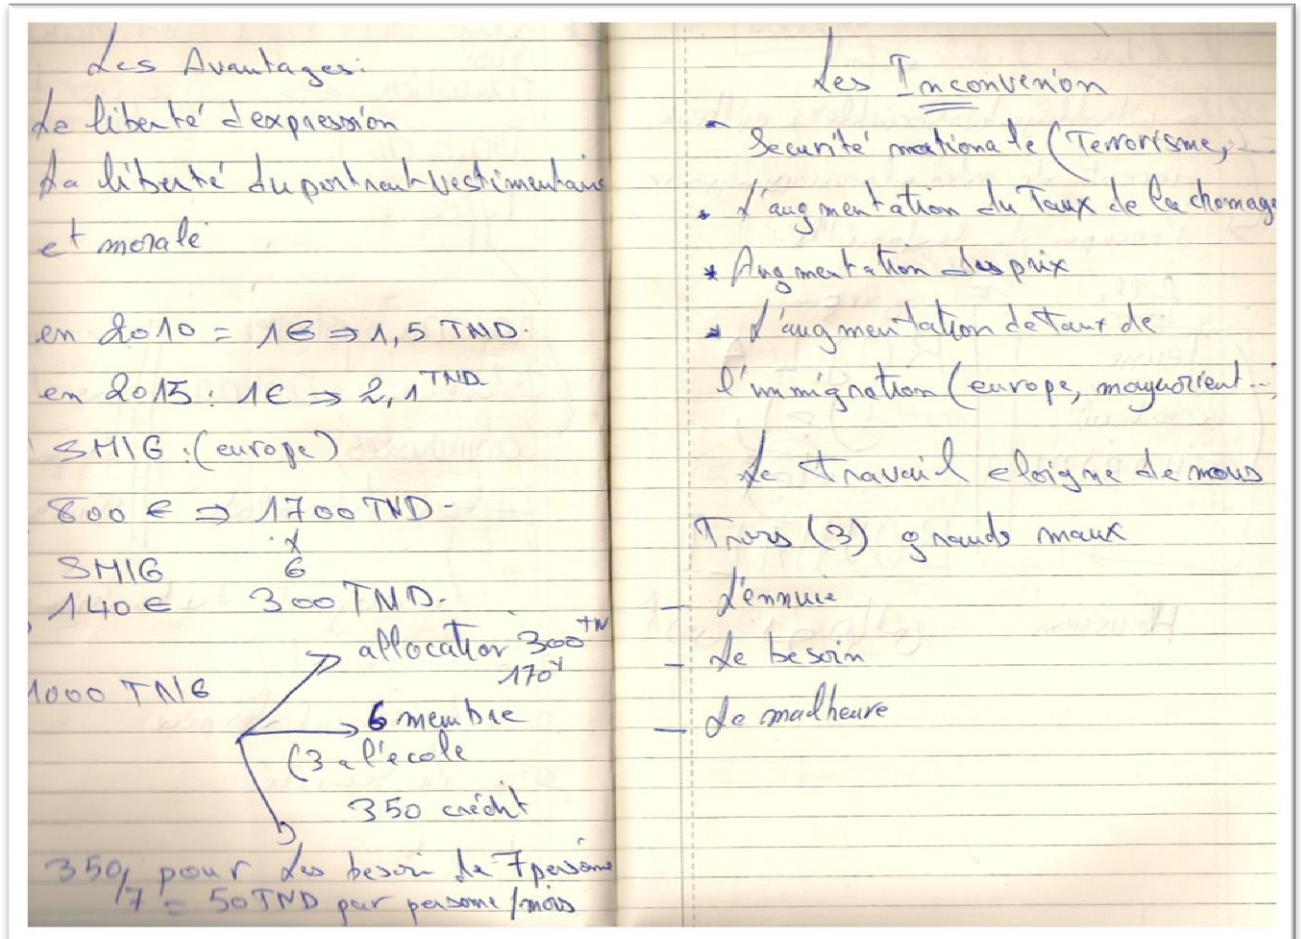 Les Avantages:
La liberté d'expression
La liberté du portrait vestimentaire
et morale
en 2010 = 1€ ⇒ 1,5 TND.
en 2015: 1€ ⇒ 2,1 TND
SMIG :(europe)
800 € ⇒ 1700 TND-
x
SMIG 6
140 € 300 TND.
allocation 300 TN
170
1000 TND
6 membre
(3 a l'école
350 crédit
350/7 pour les besoin de 7 persone
= 50 TND par persone /mois
Les Inconvenion
- Securité nationale (Terrorisme,
* L'augmentation du Taux de la chomage
* Augmentation des prix
* L'augmentation de taux de
l'immigration (europe, moyuorient...
Le travail eloigne de nous
Trois (3) grands maux
- L'ennuie
- Le besoin
- Le malheure